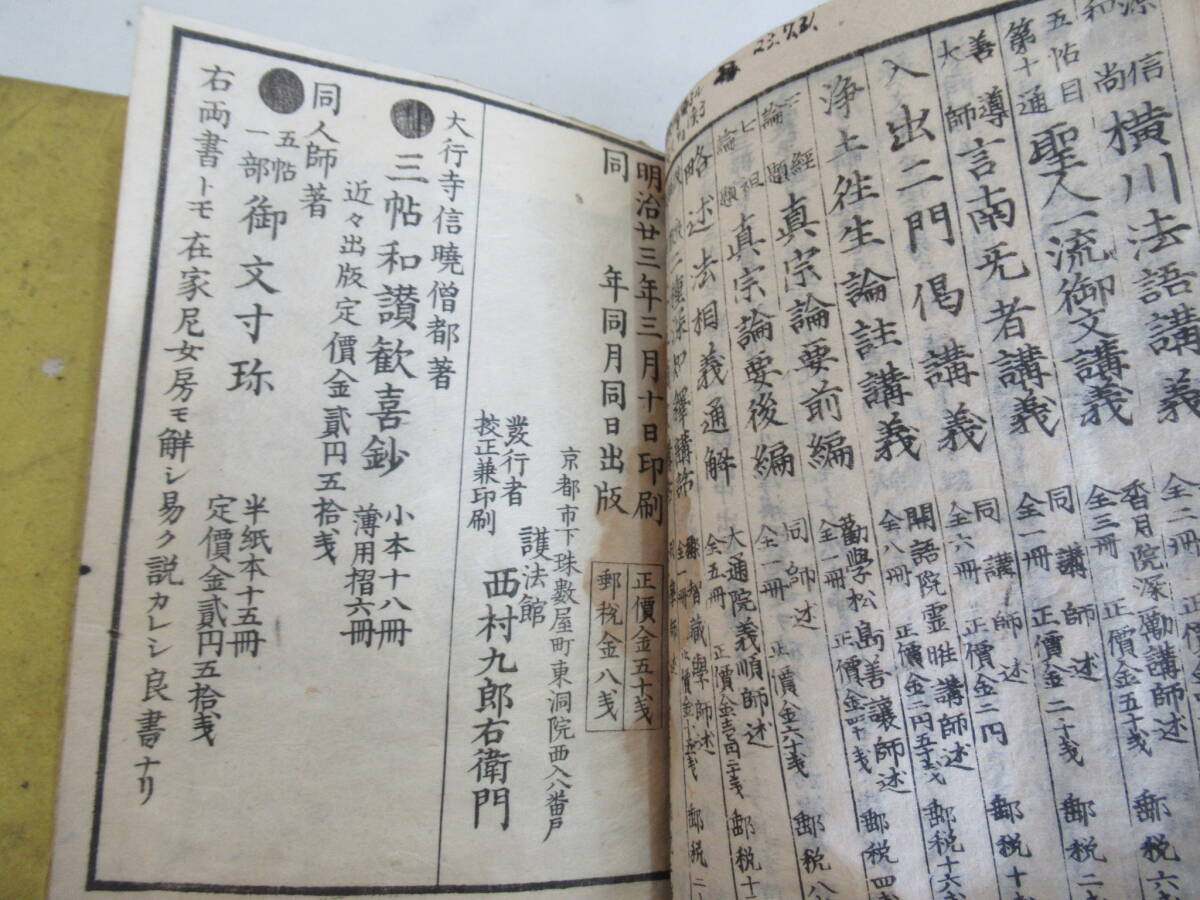 23.7.31.
源信和尚 横川法語講義 全二冊
香月院深励講師述 正價金五十戋 郵税六
五帖目第十通 聖人一流御文講義 全三冊
同講師述 正價金二十戋 郵税二
善導大師 言南无者講義 全一冊
同講師述 正價金二円 郵税十
入出二門偈講義 全六冊
開語院霊暀講師述 正價金二円五十戋 郵税十六
浄土往生論註講義 全八冊
勸學松島善讓師述 正價金四十戋 郵税四
三經論題 真宗論要前編 全一冊
同師述 正價金六十戋 郵税八
七祖論題 真宗論要後編 全二冊
大通院義順師述 郵税十二
略述法相義通解 全五冊
郵税二
明治廿三年三月十日印刷
同年同月同日出版
正價金五十戋
郵税金八戋
京都市下珠數屋町東洞院西入八番戸
護法館
發行者 西村九郎右衛門
挍正兼印刷
大行寺信曉僧都著
三帖和讃歡喜鈔 小本十八冊 薄用摺六冊
近々出版定價金貳円五拾戋
同人師著
五帖一部 御文寸珎 半紙本十五冊 定價金貳円五拾戋
右両書トモ在家尼女房モ解シ易ク説カレシ良書ナリ